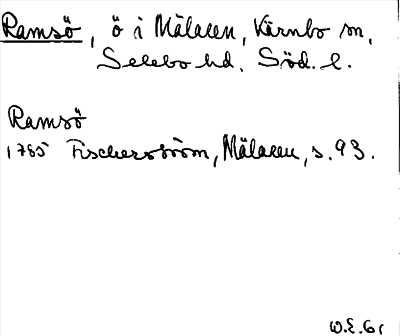 Ramsö, ö i Mälaren, Kärnbo sn,
Selebo hd, Söd. l.
Ramsö
1785 Fischerström, Mälaren, s. 93.